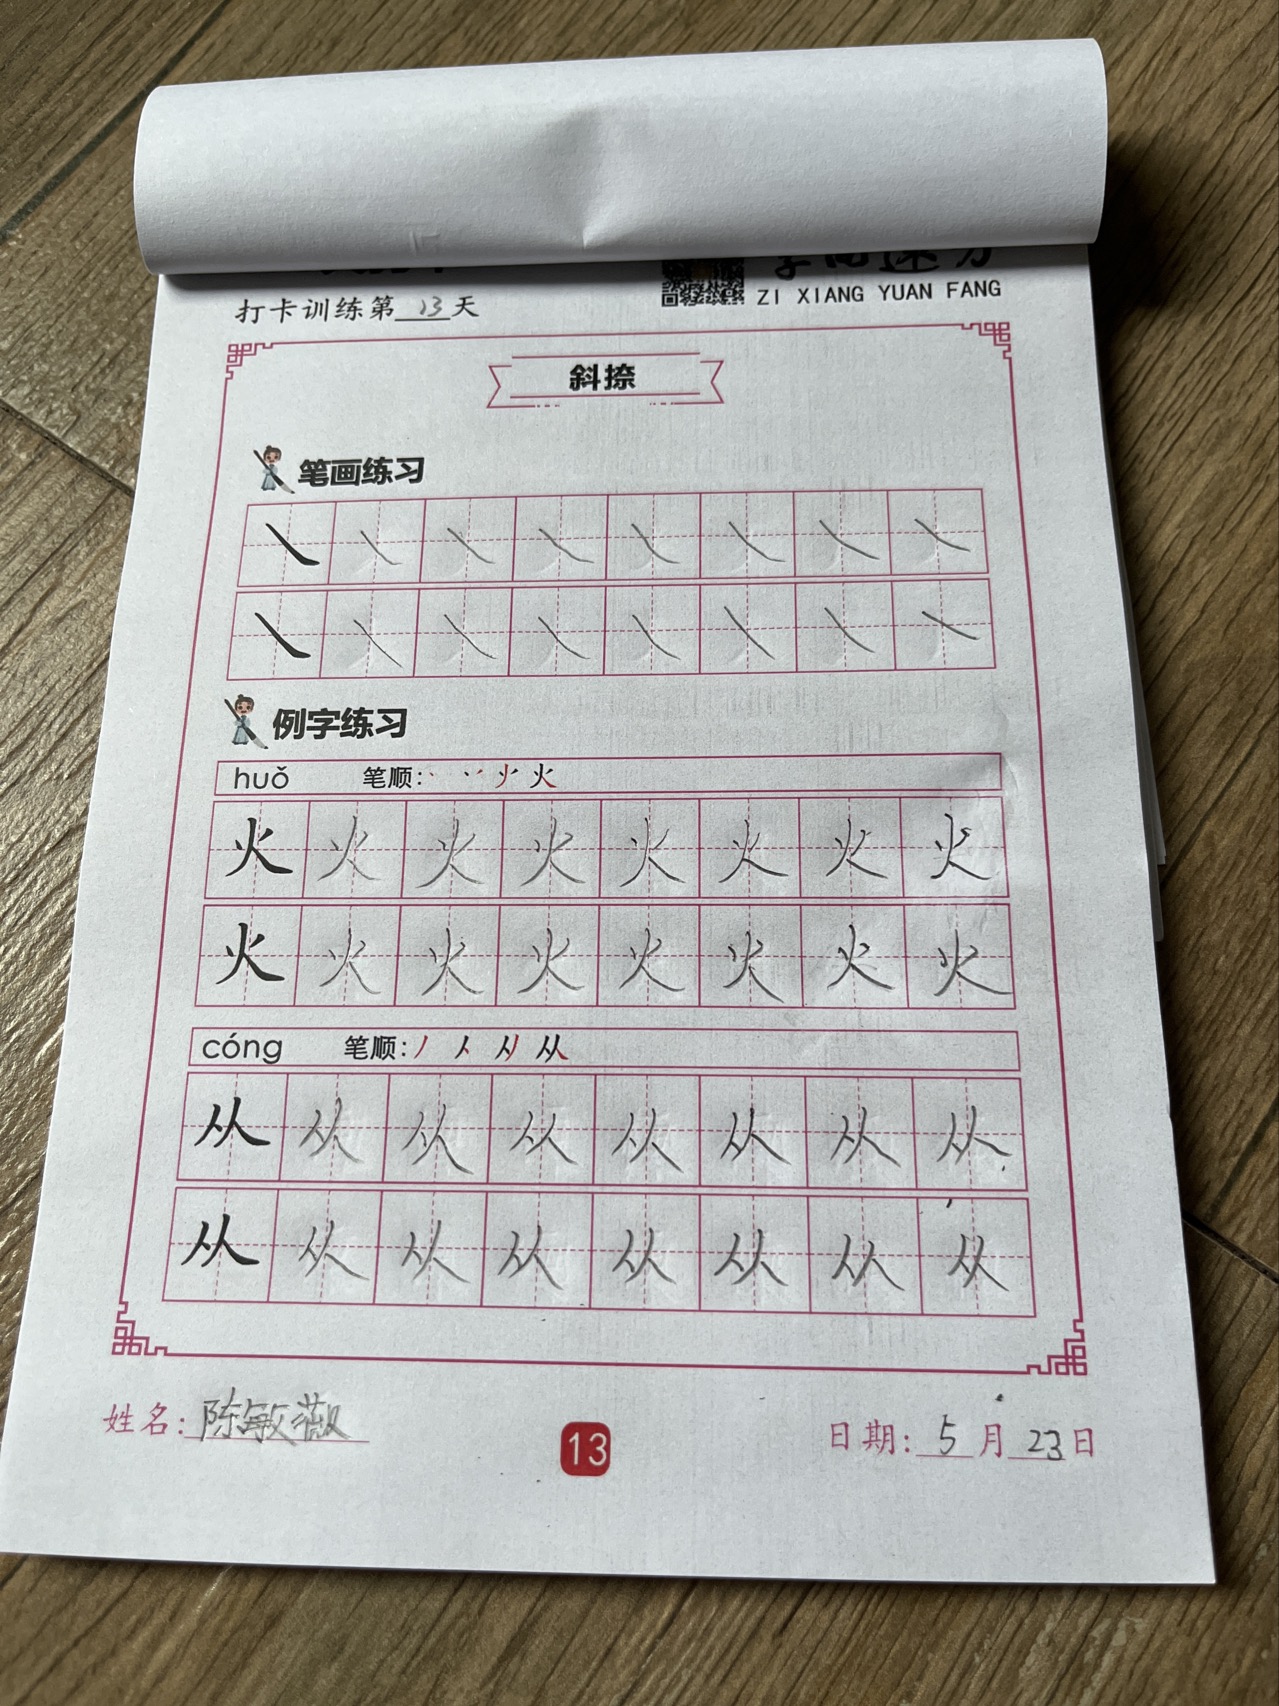 ZI XIANG YUAN FANG
打卡训练第 13 天
斜捺
笔画练习
例字练习
huǒ 笔顺: 火
火 火 火 火 火 火 火 火
火 火 火 火 火 火 火 火
cóng 笔顺: 丿 人 从
从 从 从 从 从 从 从 从
从 从 从 从 从 从 从 从
姓名: 陈敏薇
13
日期: 5 月 23 日